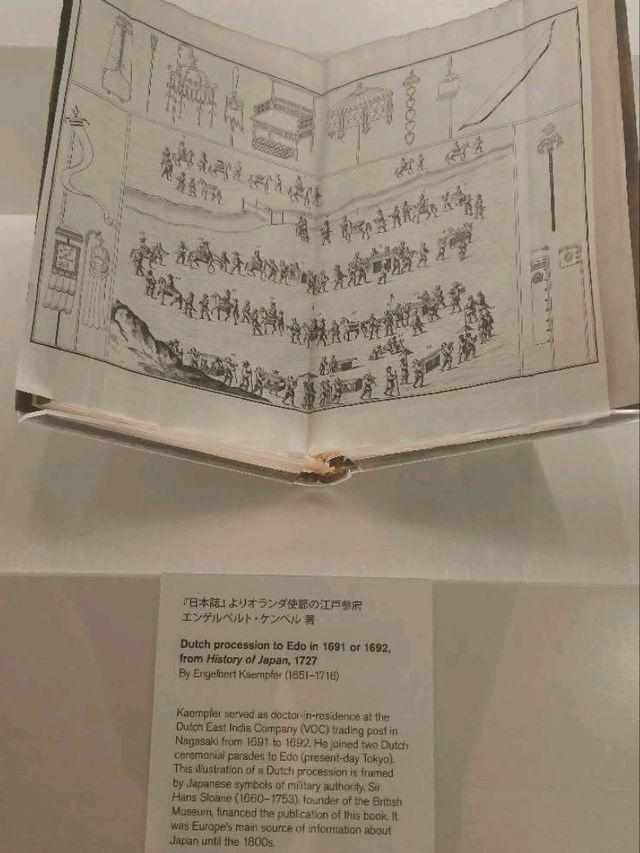 『日本誌』よりオランダ使節の江戸参府
エンゲルベルト・ケンペル 著
Dutch procession to Edo in 1691 or 1692,
from History of Japan, 1727
By Engelbert Kaempfer (1651–1716)
Kaempfer served as doctor-in-residence at the
Dutch East India Company (VOC) trading post in
Nagasaki from 1691 to 1692. He joined two Dutch
ceremonial parades to Edo (present-day Tokyo).
This illustration of a Dutch procession is framed
by Japanese symbols of military authority. Sir
Hans Sloane (1660–1753), founder of the British
Museum, financed the publication of this book. It
was Europe's main source of information about
Japan until the 1800s.